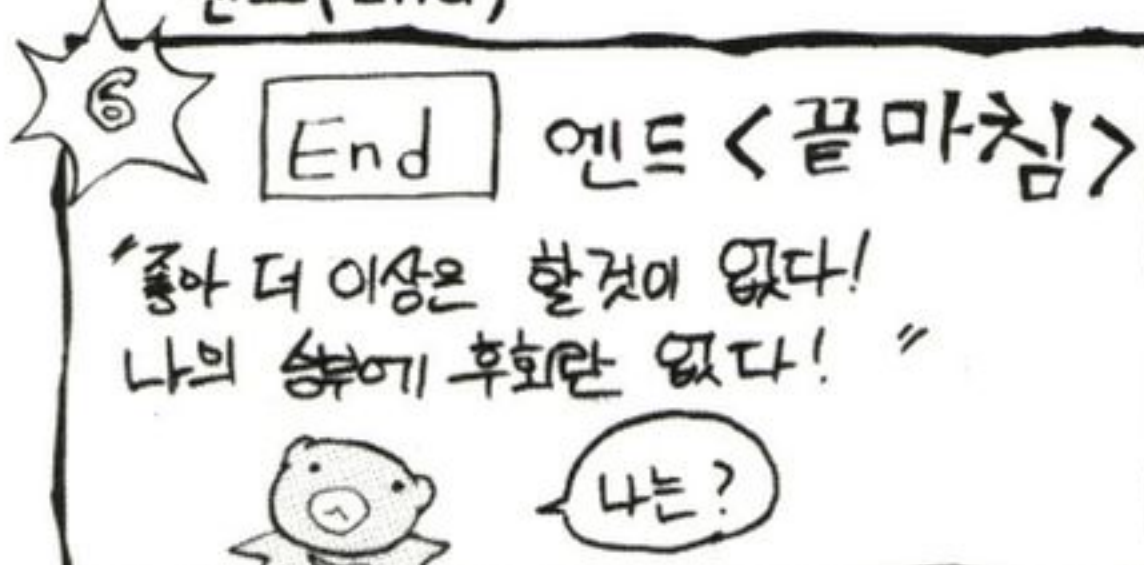 6
End 엔드 <끝마침>
"좋아 더 이상은 할것이 없다!
나의 승부에 후회란 없다! "
나는?